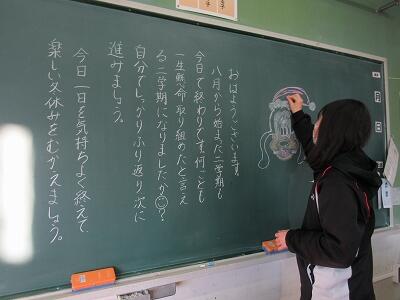 おはようございます。
八月から始まった二学期も
今日で終わりです。何ごとも
一生懸命取り組めたと言え
る二学期になりましたか?
自分でしっかりふり返り次に
進みましょう。
今日一日を気持ちよく終えて、
楽しい冬休みをむかえましょう。
月
日